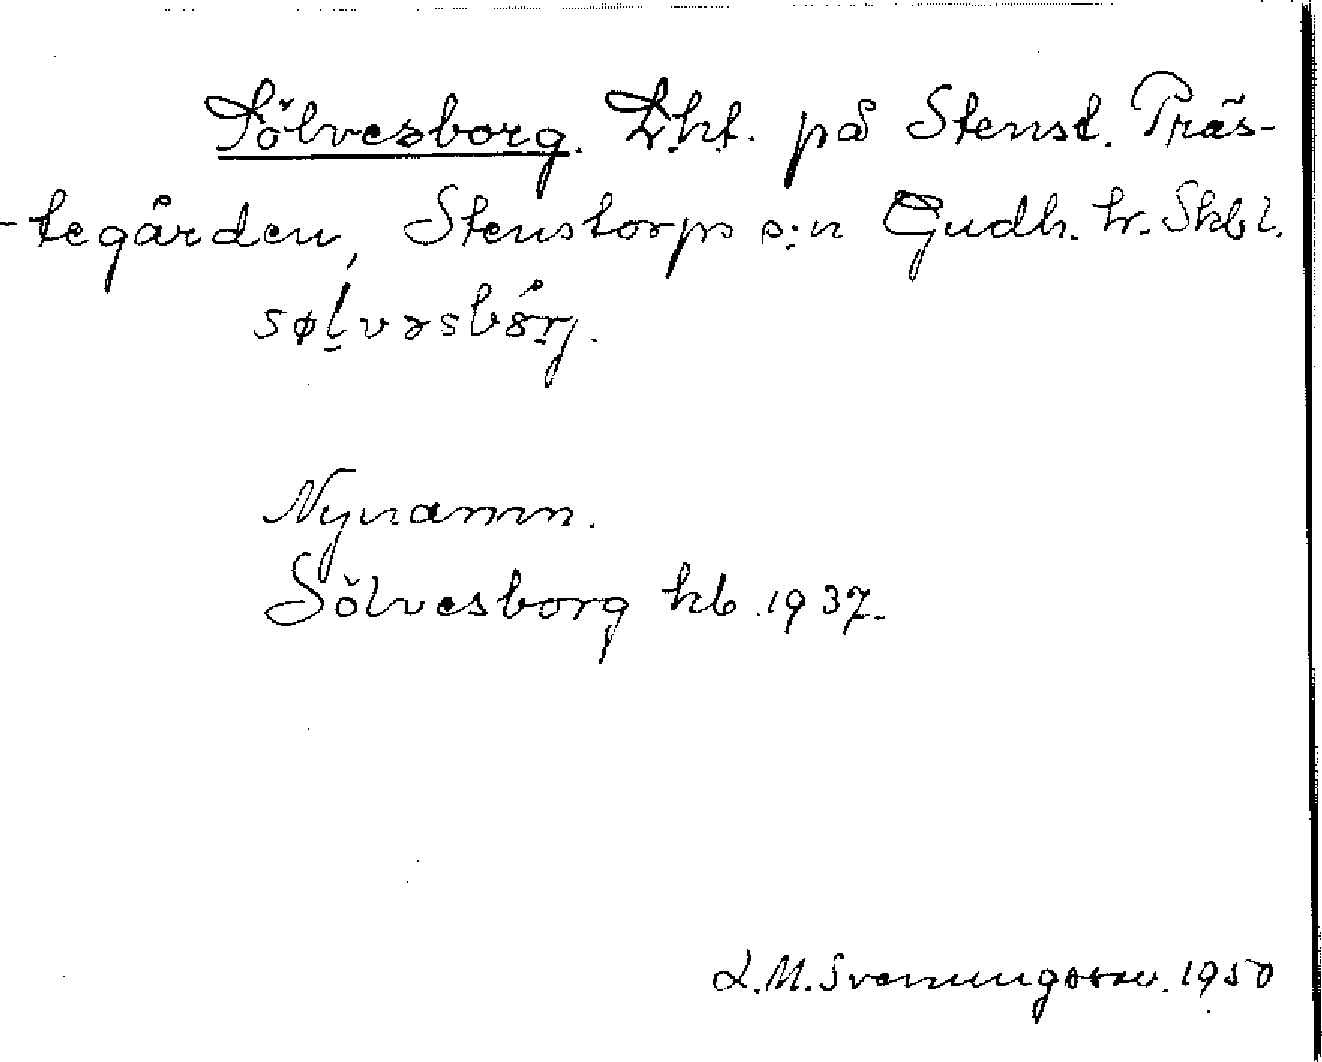 Sölvesborg. Lht. på Stenst. Präs-
-tegården, Stenstorps s:n Gudh. hr. Skbl.
søḷvəsbórj.
Nynamn.
Sölvesborg kb. 1937.
L.M. Svenungsson. 1950